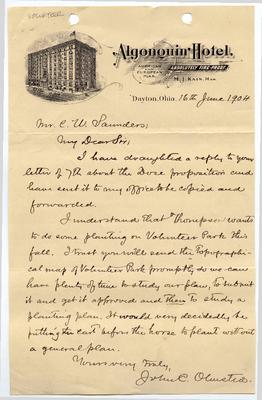 VOLUNTEER
Algonquin Hotel.
AMERICAN
AND
EUROPEAN
PLAN
ABSOLUTELY FIRE PROOF
M. J. KAIN, MGR
Dayton, Ohio. 16th June 1904
Mr. E. W. Saunders;
My Dear Sir;
I have draughted a reply to your
letter of 7th about the Dose proposition and
have sent it to my office to be copied and
forwarded.
I understand that Thompson wants
to do some planting on Volunteer Park this
fall. I trust you will send the topographi-
cal map of Volunteer Park promptly so we can
have plenty of time to study our plan, to submit
it and get it approved and then to study a
planting plan. It would very decidedly be
putting the cart before the horse to plant without
a general plan.
Yours very truly,
John C. Olmsted.